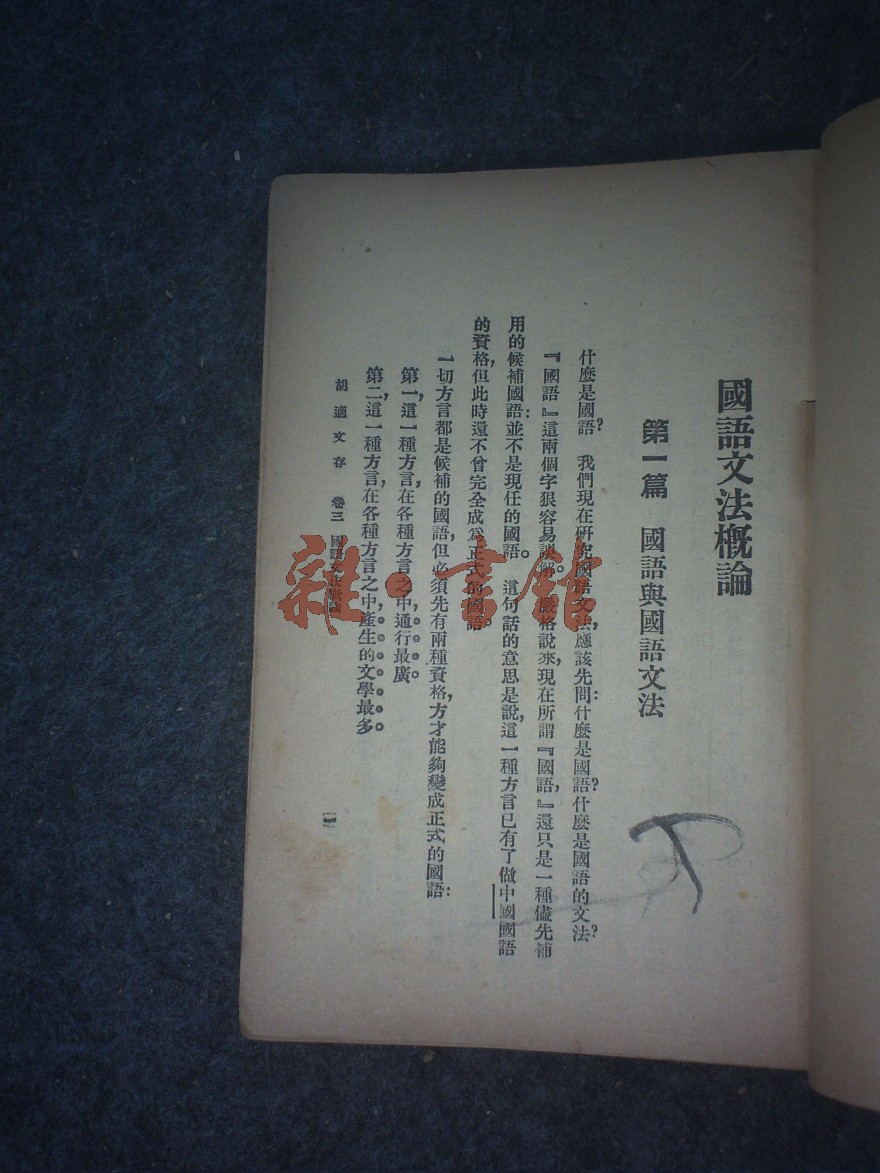 國語文法概論
第一篇 國語與國語文法
什麼是國語? 我們現在研究國語文法,應該先問:什麼是國語?什麼是國語的文法?
『國語』這兩個字狠容易誤解。嚴格說來,現在所謂『國語,』還只是一種儘先補
用的候補國語:並不是現任的國語。 這句話的意思是說,這一種方言已有了做中國國語
的資格,但此時還不曾完全成爲正式的國語。
一切方言都是候補的國語,但必須先有兩種資格,方才能夠變成正式的國語:
第一,這一種方言,在各種方言之中,通行最廣。
第二,這一種方言,在各種方言之中,產生的文學最多。
胡適文存 卷三 國語文法概論
一
雜·書館